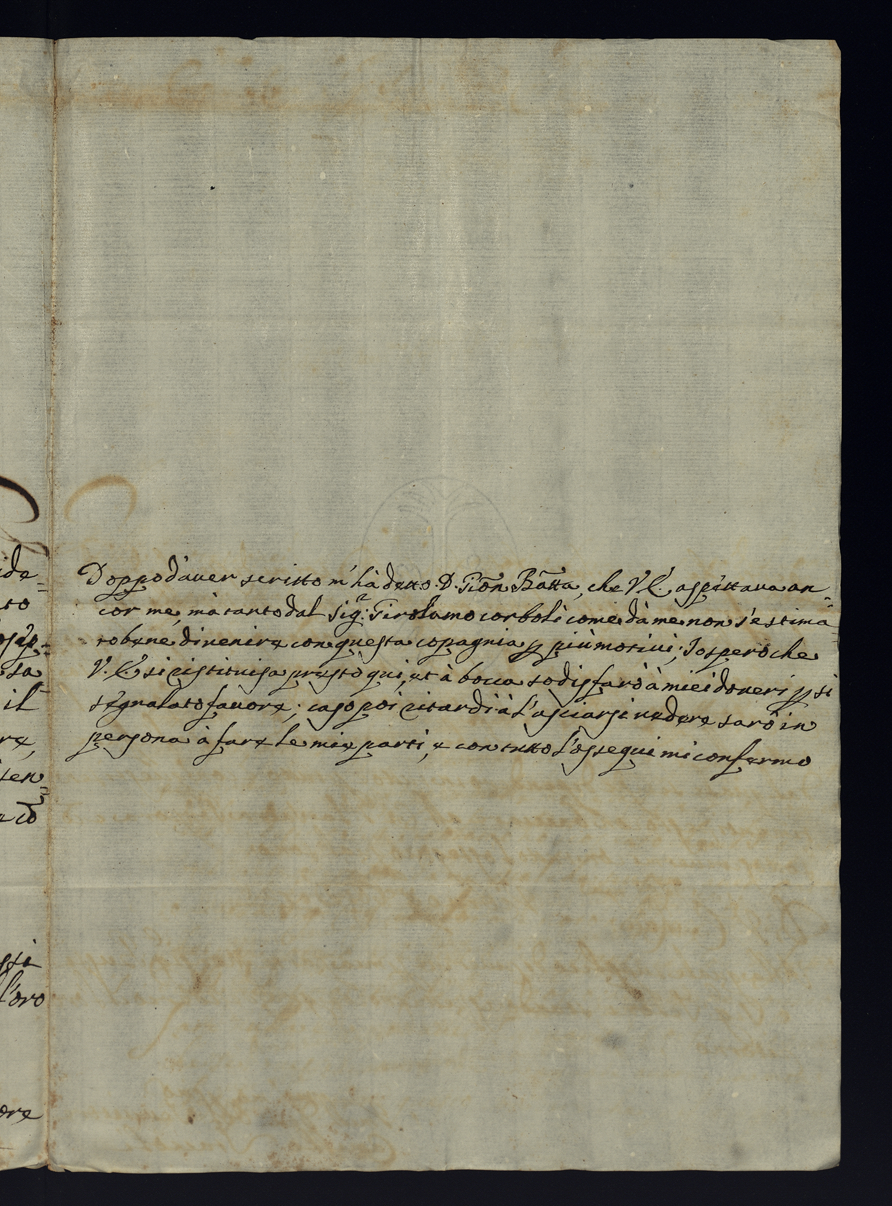 Doppo d'auer scritto m'hà detto D. Gio͞n Ba͞tta, che V. E. aspettaua an=
cor me, mà tanto dal Sig.r Girolamo corboli come dà me non s'e stima=
to bene di uenire con questa copagnia p più motiui; Io spero che
V. E. si ristituisa presto qui, et à bocca sodisfarò à miei doueri p si
segnalato fauore; caso poi ritardi à l'asciarsi uedere sarò in
persona à fare le mie parti, e con tutto l'ossequi mi confermo
ide=
to
sa
il
re,
sen=
co
ssi
l'oro
ore